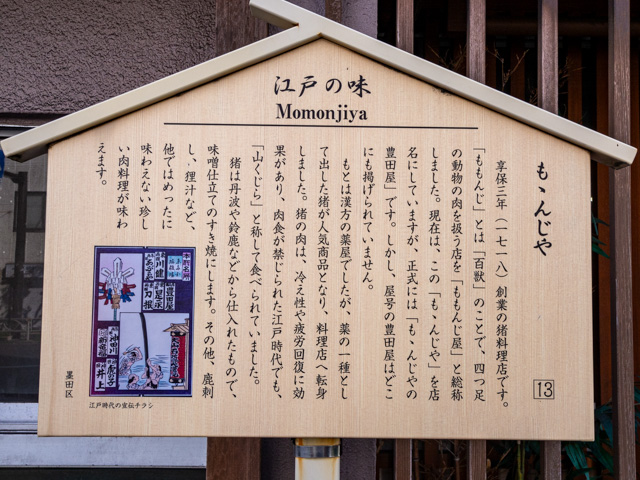 江戸の味
Momonjiya
もゝんじや
享保三年（一七一八）創業の猪料理店です。
「ももんじ」とは「百獣」のことで、四つ足
の動物の肉を扱う店を「ももんじ屋」と総称
しました。現在は、この「もゝんじや」を店
名にしていますが、正式には「もゝんじやの
豊田屋」です。しかし、屋号の豊田屋はどこ
にも掲げられていません。
もとは漢方の薬屋でしたが、薬の一種とし
て出した猪が人気商品となり、料理店へ転身
しました。猪の肉は、冷え性や疲労回復に効
果があり、肉食が禁じられた江戸時代でも、
「山くじら」と称して食べられていました。
猪は丹波や鈴鹿などから仕入れたもので、
味噌仕立てのすき焼にします。その他、鹿刺
し、狸汁など、
他ではめったに
味わえない珍し
い肉料理が味わ
えます。
13
江戸時代の宣伝チラシ
墨田区